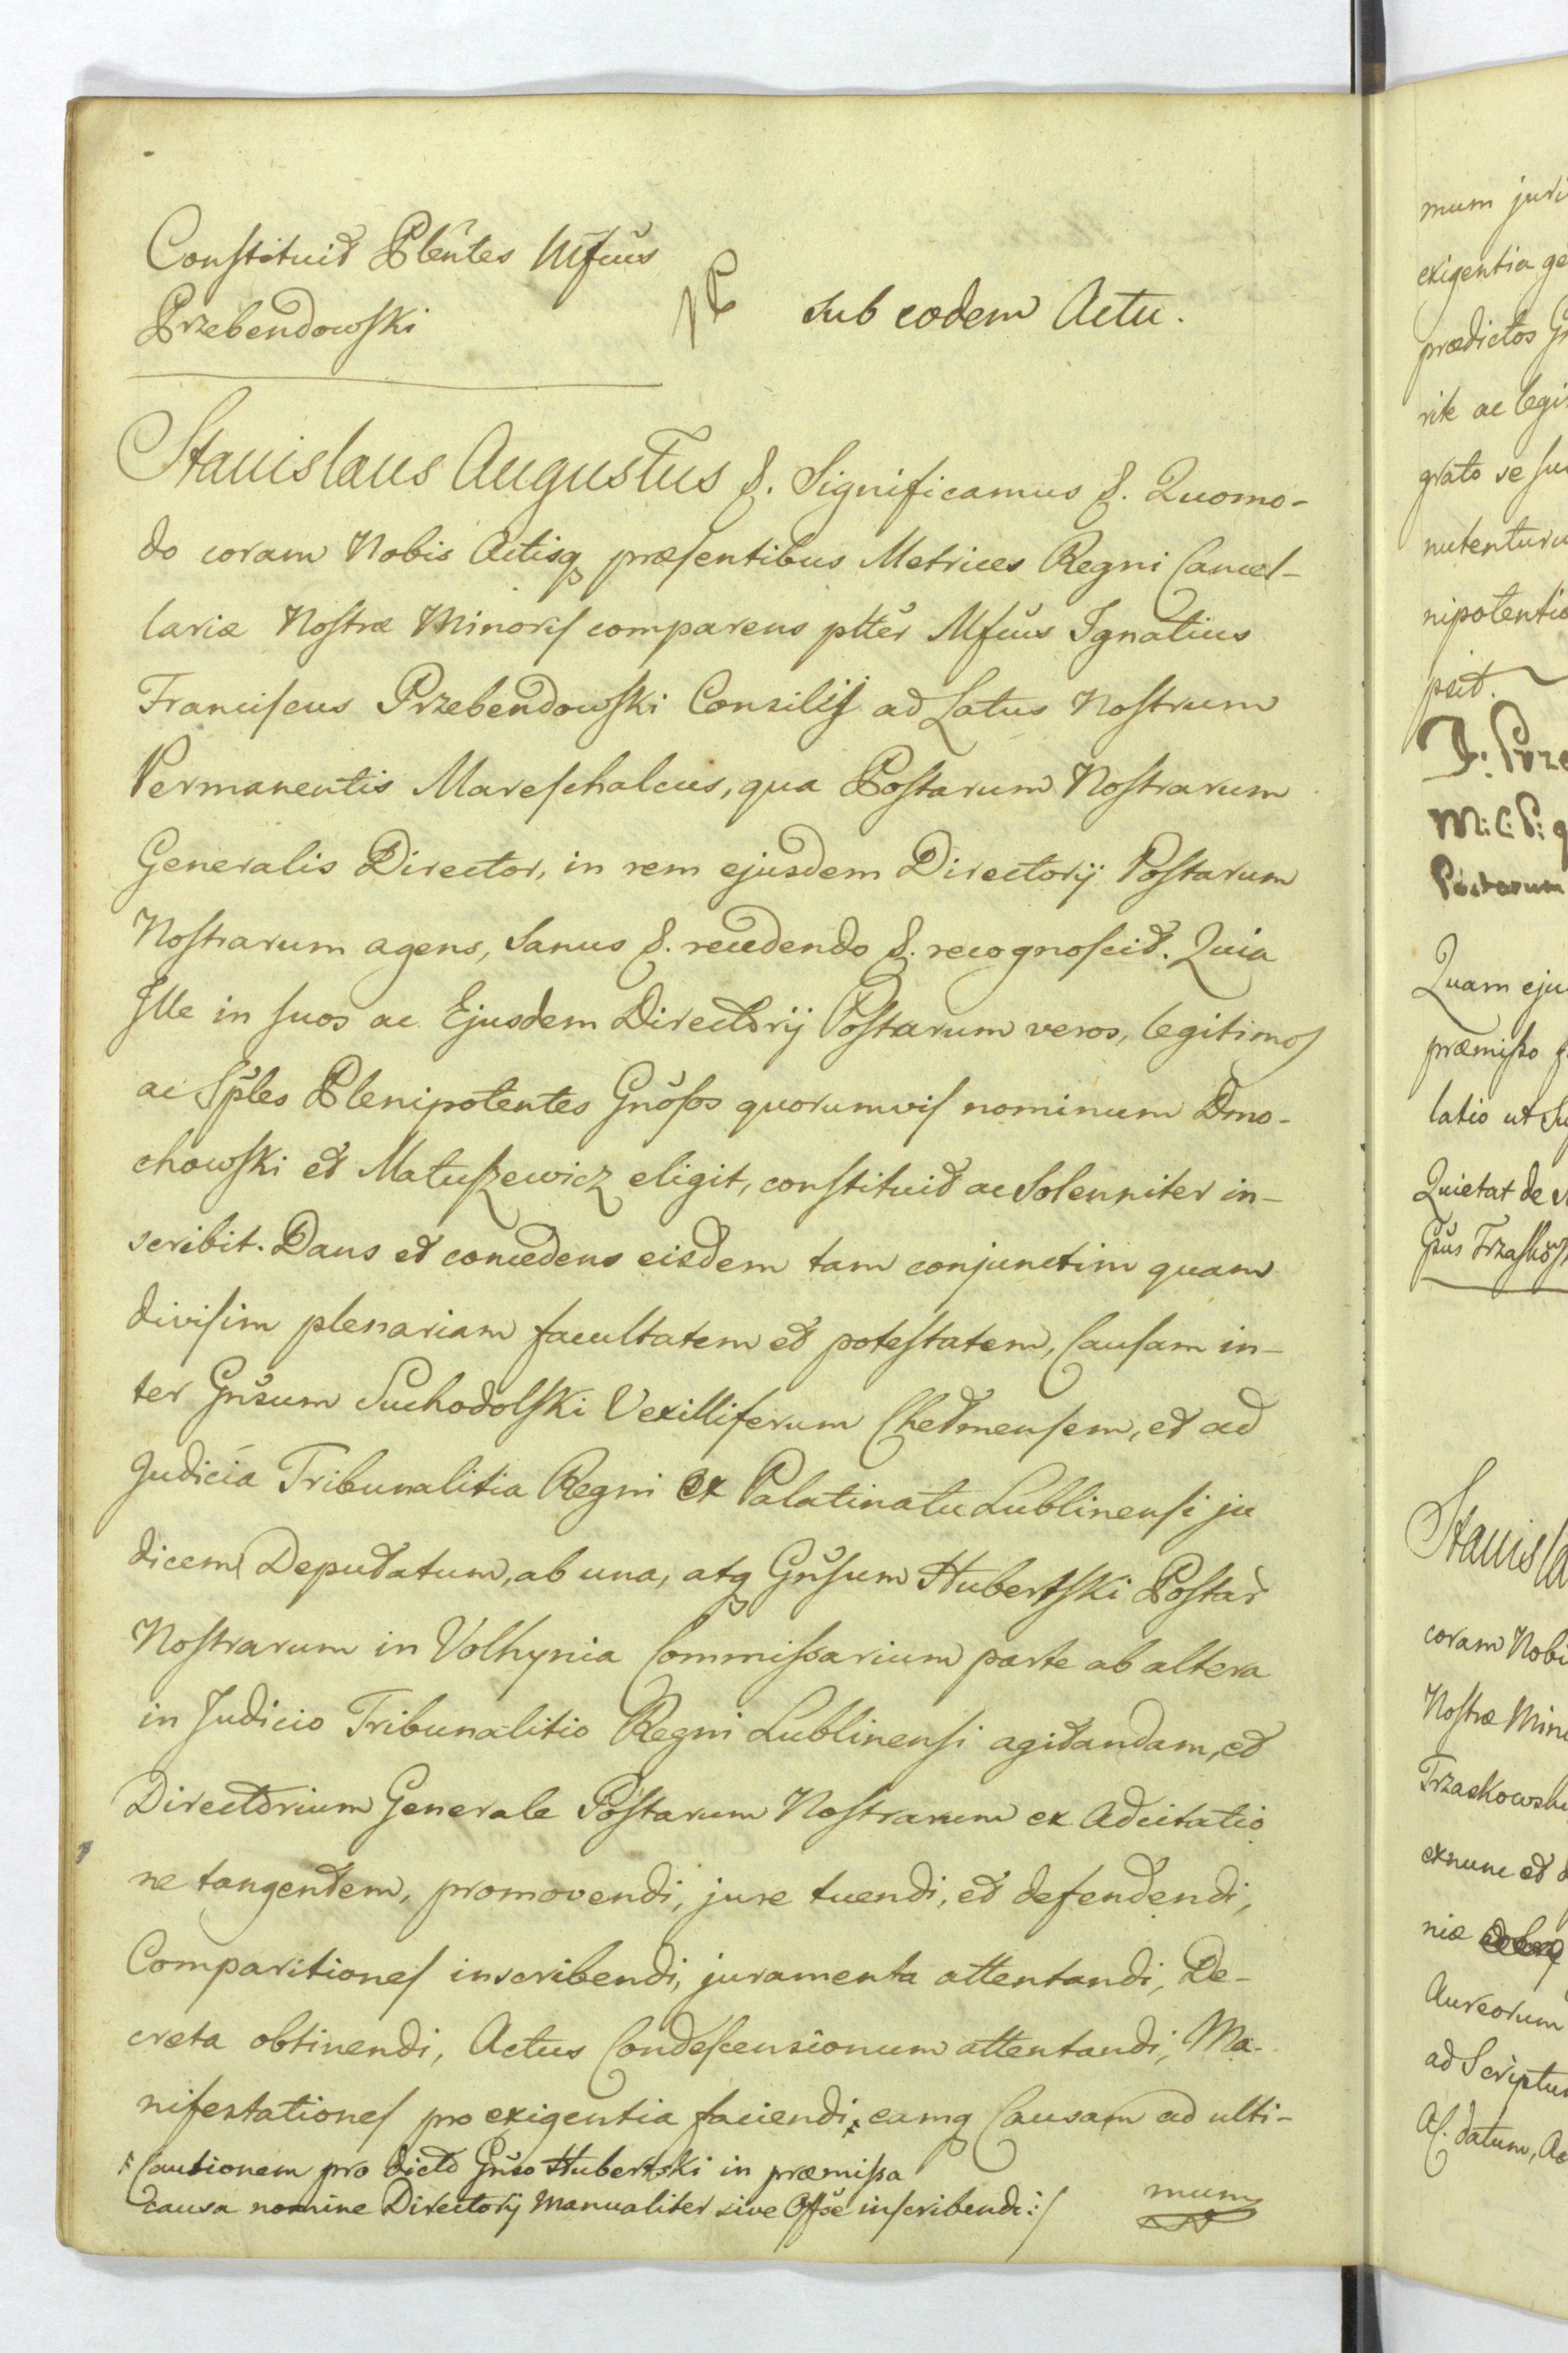 Constituit Plentes Mfcus
Przebendowski
sub eodem Actu.
Stanislaus Augustus &. Significamus &. Quomo-
do coram Nobis Actisq præsentibus Metrices Regni Cancel-
lariæ Nostræ Minoris comparens ptter Mfcus Ignatius
Franciscus Przebendowski Consilij ad Latus Nostrum
Permanentis Mareschalcus, qua Postarum Nostrarum
Generalis Director, in rem ejusdem Directorij Postarum
Nostrarum agens, Sanus &. recedendo &. recognoscit. Quia
Ille in suos ac Ejusdem Directorij Postarum veros, legitimos
ac Sples Plenipotentes Gnosos quorumvis nominum Dmo-
chowski et Matuszewicz eligit, constituit ac Solenniter in-
scribit. Dans et concedens eisdem tam conjunctim quam
divisim plenariam facultatem et potestatem, Causam in-
ter Gnsum Suchodolski Vexilliferum Chełmensem, et ad
Judicia Tribunalitia Regni ex Palatinatu Lublinensi ju
dicem Deputatum, ab una, atq Gnsum Hubertski Postar
Nostrarum in Volhynia Commissarium parte ab altera
in Judicio Tribunalitio Regni Lublinensi agitandam, et
Directorium Generale Postarum Nostrarum ex Adcitatio
ne tangentem, promovendi, jure tuendi, et defendendi,
Comparitiones inscribendi, juramenta attentandi, De-
creta obtinendi, Actus Condescensionum attentandi, Ma-
nifestationes pro exigentia faciendi, eamq Causam ad ulti-
Cautionem pro dicto Gnso Hubertski in præmissa
causa nomine Directorij Manualiter sive Offse inscribendi:/
mum
mum juri
exigentia ge
prædictos G
rite ac legi
grato se su
nutenturu
nipotentia
psit.
J: Prze
M: C: P: q
Postarum
Quam eju
præmisso
latio ut Su
Quietat de
Gsus Trzaskowsk
Stanisla
coram Nobi
Nostræ Mino
Trzaskowski
exnunc et d
niæ
Aureorum
ad Scriptu
Af. datum, Ac